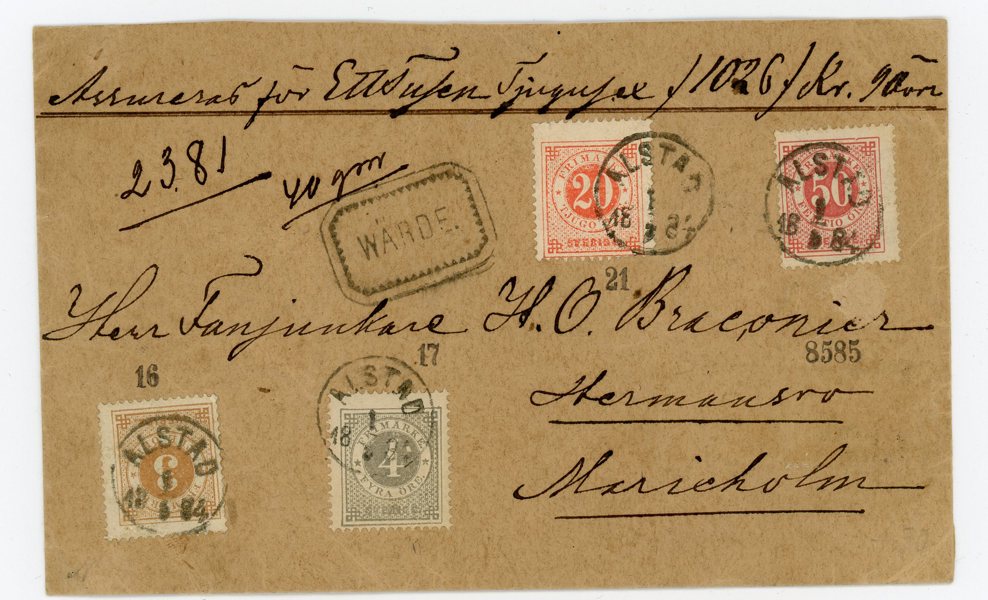 Assureras för Etttusen Tjugusex /1026/ Kr. 90 öre
23.81 40 grm
WÄRDE.
FRIMÄRKE
20
TJUGO
SVERIGE
ALSTAD
1
18 84
21
50
FEMTIO ÖRE
ALSTAD
1
18 84
Herr Fanjunkare H. O. Braconier
8585
Hermansro
Marieholm
16
3
ALSTAD
1
18 84
17
FRIMÄRKE
4
FYRA ÖRE
SVERIGE
ALSTAD
1
18